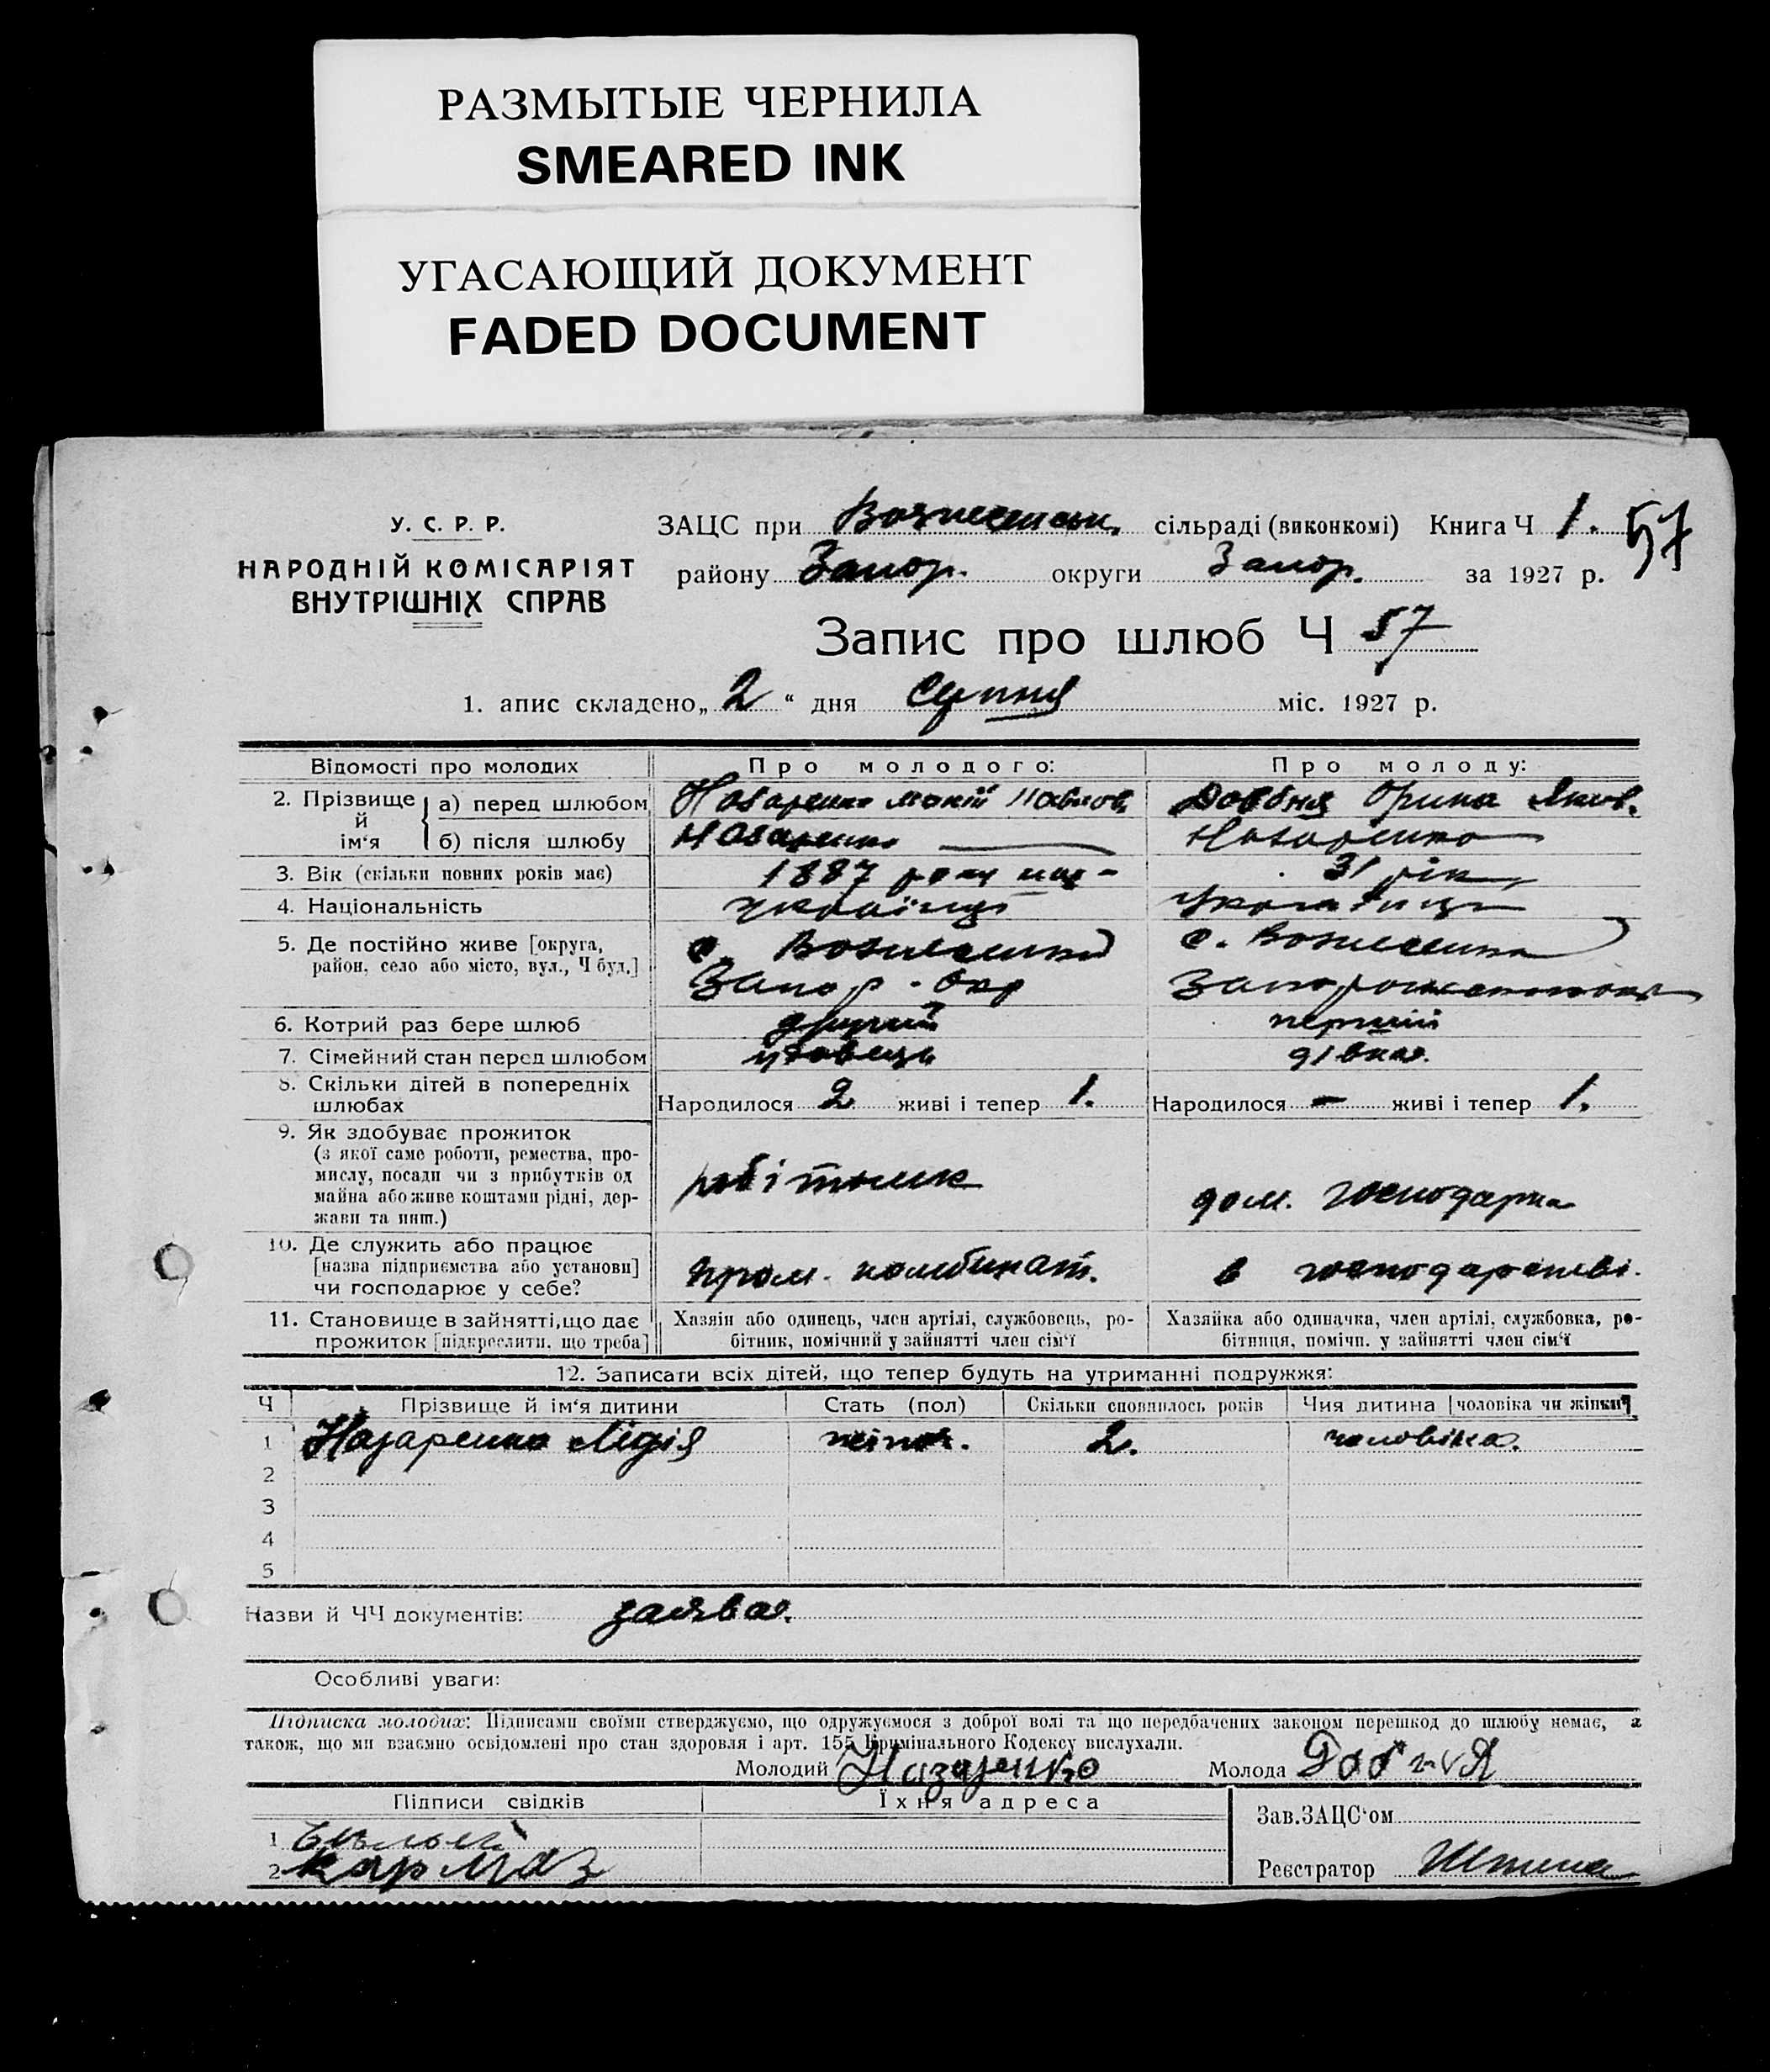 РАЗМЫТЫЕ ЧЕРНИЛА
SMEARED INK
УГАСАЮЩИЙ ДОКУМЕНТ
FADED DOCUMENT
У. С. Р. Р.
НАРОДНІЙ КОМІСАРІЯТ
ВНУТРІШНІХ СПРАВ
ЗАЦС при Вознесенськ. сільраді (виконкомі) Книга Ч 1. 57
району Запор. округи Запор. за 1927 р.
Запис про шлюб Ч 57
1. апис складено „ 2 “ дня Серпня міс. 1927 р.
Відомості про молодих Про молодого: Про молоду:
2. Прізвище й ім'я а) перед шлюбом Назаренко Павлов. Довбня Орина Яков.
б) після шлюбу Назаренко Назаренко
3. Вік (скільки повних років має) 1887 року нар- 31 рік
4. Національність українць українка
5. Де постійно живе [округа, с. Вознесенка с. Вознесенка
район, село або місто, вул., Ч буд.] Запор. окр
6. Котрий раз бере шлюб другий перший
7. Сімейний стан перед шлюбом удовець дівка.
8. Скільки дітей в попередніх
шлюбах Народилося 2 живі і тепер 1. Народилося — живі і тепер 1.
9. Як здобуває прожиток
(з якої саме роботи, ремества, про-
мислу, посади чи з прибутків од
майна або живе коштами рідні, дер-
жави та инш.)
робітник дом. господарка
10. Де служить або працює
[назва підприємства або установи]
чи господарює у себе?
пром. комбинат. в господарстві.
11. Становище в зайнятті, що дає Хазяїн або одинець, член артілі, службовець, ро- Хазяйка або одиначка, член артілі, службовка, ро-
прожиток [підкреслити, що треба] бітник, помічний у зайнятті член сім'ї бітниця, помічн. у зайнятті член сім'ї
12. Записати всіх дітей, що тепер будуть на утриманні подружжя:
Ч Прізвище й ім'я дитини Стать (пол) Скільки сповнилось років Чия дитина [чоловіка чи жінки]
1 Назаренко Лідія жіноч. 2. чоловіка.
2
3
4
5
Назви й ЧЧ документів: заява.
Особливі уваги:
Підписка молодих: Підписами своїми стверджуємо, що одружуємося з доброї волі та що передбачених законом перешкод до шлюбу немає, а
також, що ми взаємно освідомлені про стан здоровля і арт. 155 Кримінального Кодексу вислухали.
Молодий Назаренко Молода Довбня
Підписи свідків Їхня адреса Зав. ЗАЦС'ом
1
2 Кармаз Реєстратор